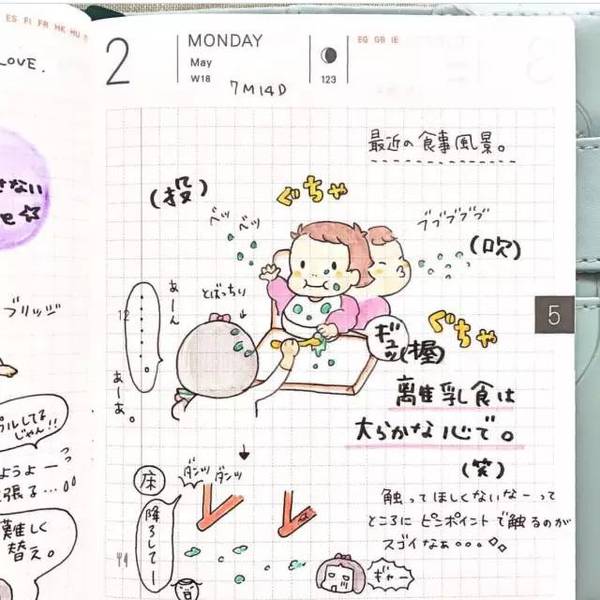 ES FI FR HK HU
LOVE.
2
MONDAY
May
W18
7M14D
123
EG GB IE
最近の食事風景。
(投)
ぐちゃ
ペッ ペッ
ブブブブブ
(吹)
あーん
とばっちり
12
ぐちゃ
ギュッ
(握)
5
ブリッジ
あーあ。
離乳食は
大らかな心で。
(笑)
床
ダンッ ダンッ
降ろしてー
触ってほしくないなーって
ところにピンポイントで触るのが
スゴイなぁ。。。
ギャー
じゃん!!
難しく
替え。